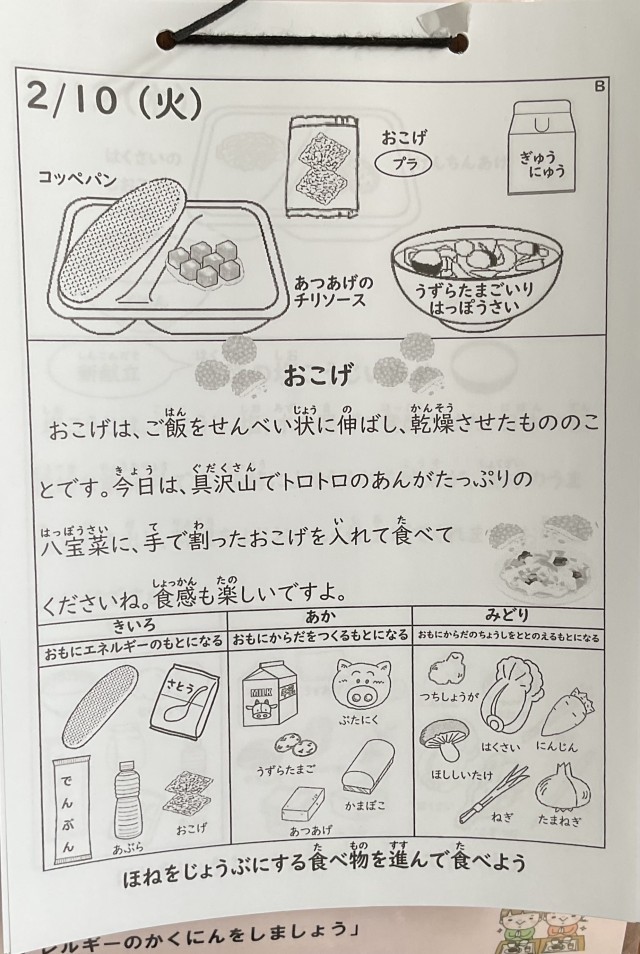 2/10 (火)
B
おこげ
プラ
ぎゅう
にゅう
コッペパン
あつあげの
チリソース
うずらたまごいり
はっぽうさい
おこげ
おこげは、ご飯をせんべい状に伸ばし、乾燥させたもののこ
とです。今日は、具沢山でトロトロのあんがたっぷりの
八宝菜に、手で割ったおこげを入れて食べて
くださいね。食感も楽しいですよ。
きいろ
おもにエネルギーのもとになる
さとう
でんぷん
あぶら
おこげ
あか
おもにからだをつくるもとになる
MILK
ぶたにく
うずらたまご
かまぼこ
あつあげ
みどり
おもにからだのちょうしをととのえるもとになる
つちしょうが
はくさい
にんじん
ほししいたけ
ねぎ
たまねぎ
ほねをじょうぶにする食べ物を進んで食べよう
ルギーのかくにんをしましょう」